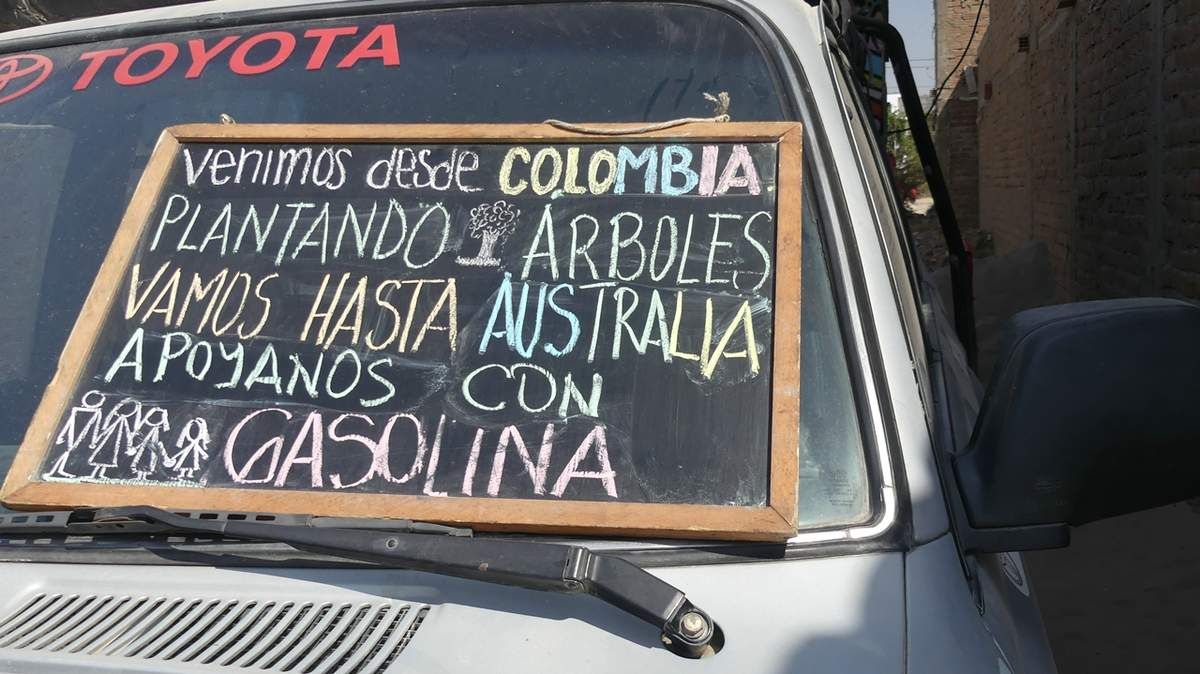 TOYOTA
venimos desde COLOMBIA
PLANTANDO ÁRBOLES
VAMOS HASTA AUSTRALIA
APOYANOS CON
GASOLINA